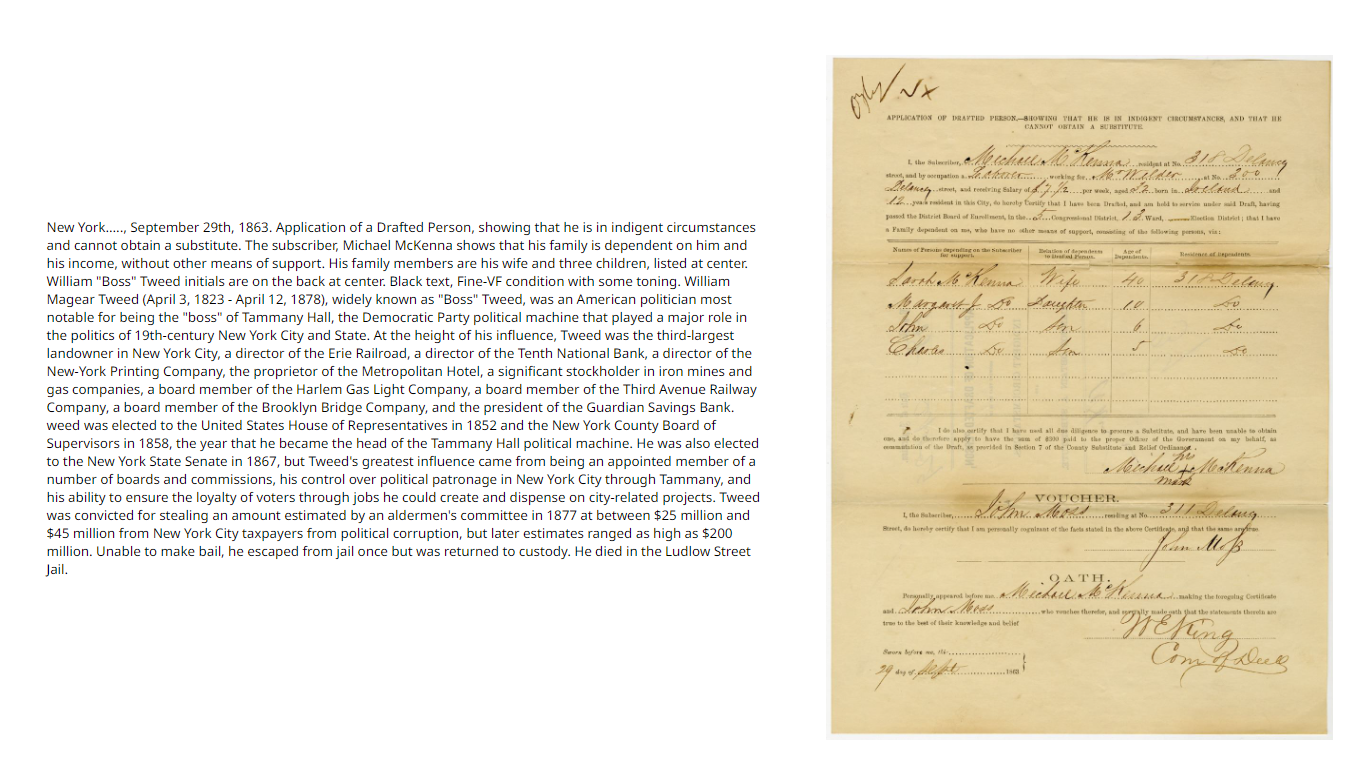 New York....., September 29th, 1863. Application of a Drafted Person, showing that he is in indigent circumstances
and cannot obtain a substitute. The subscriber, Michael McKenna shows that his family is dependent on him and
his income, without other means of support. His family members are his wife and three children, listed at center.
William "Boss" Tweed initials are on the back at center. Black text, Fine-VF condition with some toning. William
Magear Tweed (April 3, 1823 - April 12, 1878), widely known as "Boss" Tweed, was an American politician most
notable for being the "boss" of Tammany Hall, the Democratic Party political machine that played a major role in
the politics of 19th-century New York City and State. At the height of his influence, Tweed was the third-largest
landowner in New York City, a director of the Erie Railroad, a director of the Tenth National Bank, a director of the
New-York Printing Company, the proprietor of the Metropolitan Hotel, a significant stockholder in iron mines and
gas companies, a board member of the Harlem Gas Light Company, a board member of the Third Avenue Railway
Company, a board member of the Brooklyn Bridge Company, and the president of the Guardian Savings Bank.
weed was elected to the United States House of Representatives in 1852 and the New York County Board of
Supervisors in 1858, the year that he became the head of the Tammany Hall political machine. He was also elected
to the New York State Senate in 1867, but Tweed's greatest influence came from being an appointed member of a
number of boards and commissions, his control over political patronage in New York City through Tammany, and
his ability to ensure the loyalty of voters through jobs he could create and dispense on city-related projects. Tweed
was convicted for stealing an amount estimated by an aldermen's committee in 1877 at between $25 million and
$45 million from New York City taxpayers from political corruption, but later estimates ranged as high as $200
million. Unable to make bail, he escaped from jail once but was returned to custody. He died in the Ludlow Street
Jail.
APPLICATION OF DRAFTED PERSON,—SHOWING THAT HE IS IN INDIGENT CIRCUMSTANCES, AND THAT HE
CANNOT OBTAIN A SUBSTITUTE.
I, the Subscriber, Michael McKenna resident at No. 318 Delancy
street, and by occupation a Laborer working for Mr Wilder at No. 200
Delancy street, and receiving Salary of $7 1/2 per week, aged 32 born in Ireland and
12 years resident in this City, do hereby Certify that I have been Drafted, and am held to service under said Draft, having
passed the District Board of Enrollment, in the 5 Congressional District, 13 Ward, Election District; that I have
a Family dependent on me, who have no other means of support, consisting of the following persons, viz:
Names of Persons depending on the Subscriber for support. Relation of dependents to Drafted Person. Age of Dependents. Residence of dependents.
Sarah McKenna Wife 40 318 Delancy
Margaret J. Do Daughter 10 Do
John Do Son 6 Do
Charles Do Son 5 Do
I do also certify that I have used all due diligence to procure a Substitute, and have been unable to obtain
one, and do therefore apply to have the sum of $300 paid to the proper Officer of the Government on my behalf, as
commutation of the Draft, as provided in Section 7 of the County Substitute and Relief Ordinance.
his
Michael + McKenna
mark
VOUCHER.
I, the Subscriber, John Moss residing at No. 311 Delancy
Street, do hereby certify that I am personally cognizant of the facts stated in the above Certificate, and that the same are true.
John Moss
OATH.
Personally appeared before me, Michael McKenna making the foregoing Certificate
and John Moss who vouches thereby, and severally made oath that the statements therein are
true to the best of their knowledge and belief
W E King
Com of Deeds
Sworn before me, this
29 day of Sept 1863